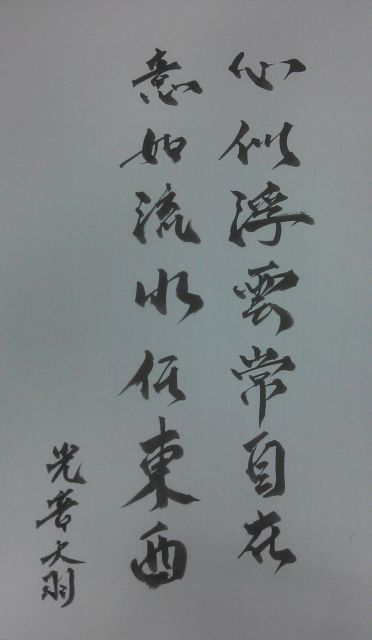 心似浮雲常自在
意如流水任東西
光音大羽